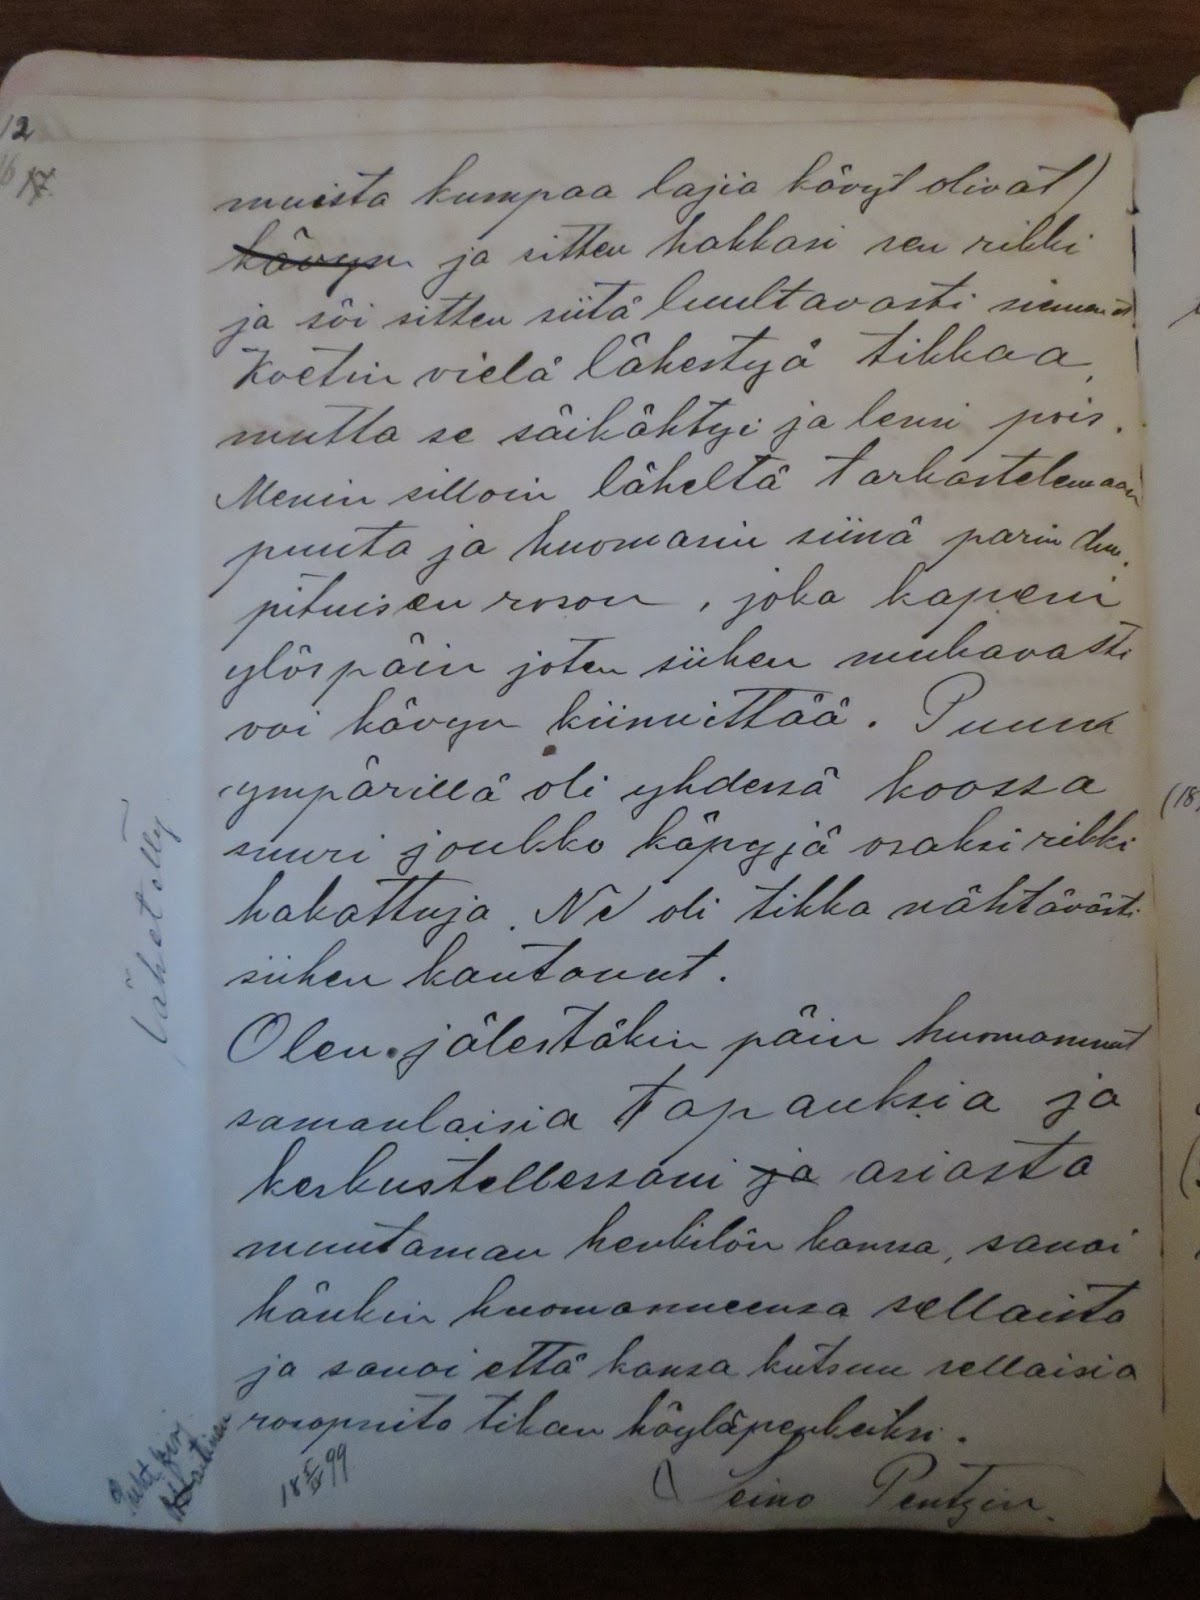 12
17.
muista kumpaa lajia kävyt olivat)
kävyn ja sitten hakkasi sen rikki
ja söi sitten siitä luultavasti siemenet
Koetin vielä lähestyä tikkaa,
mutta se säikähtyi ja lensi pois.
Menin silloin läheltä tarkastelemaan
puuta ja huomasin siinä parin dm.
pituisen roson, joka kapeni
ylöspäin joten siihen mukavasti
voi kävyn kiinnittää. Puun
ympärillä oli yhdessä koossa
suuri joukko käpyjä osaksi rikki
hakattuja. Ne oli tikka nähtävästi
siihen kantanut.
Olen jälestäkin päin huomannut
samanlaisia tapauksia ja
keskustellessani ja asiasta
muutaman henkilön kanssa, sanoi
hänkin huomanneensa sellaista
ja sanoi että kansa kutsuu sellaisia
rosopuita tikan höyläpenkeiksi.
Leino Pentzin.
18 99
Lähetetty
Puht. kirj.
(18